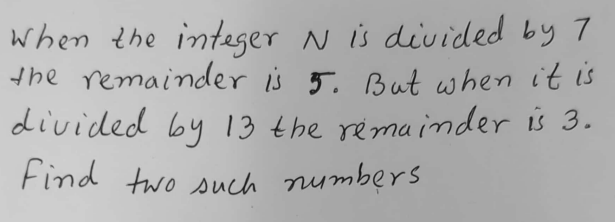 When the integer N is divided by 7
the remainder is 5. But when it is
divided by 13 the remainder is 3.
Find two such numbers